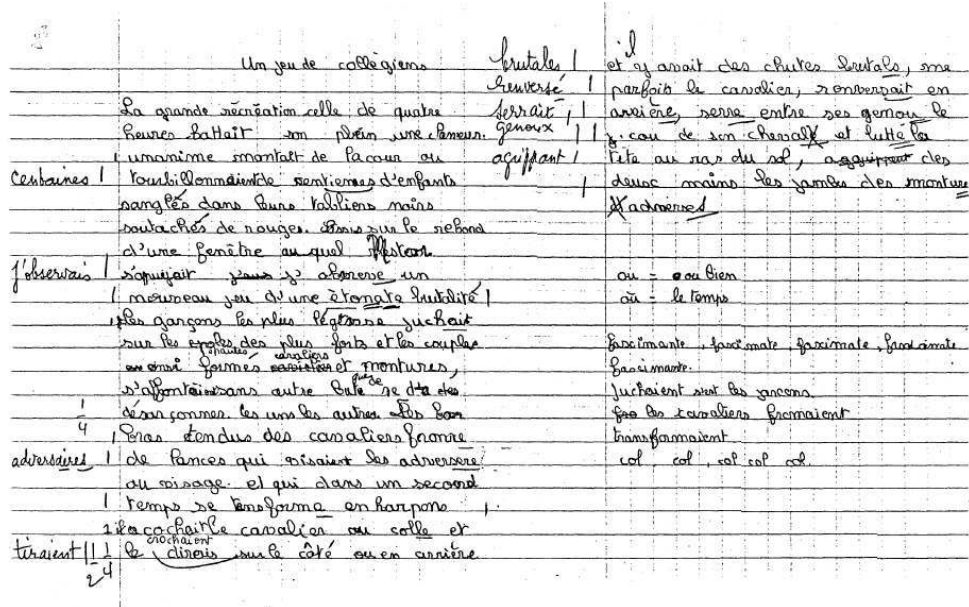 Un jeu de collègiens
La grande récréation celle de quatre
heures battait son plein une clameur.
unanime montait de la cour ou
centaines
tourbillonnaient de sentiemes d'enfants
sanglés dans leurs tabliers noirs
soutachés de rouges. Assis sur le rebond
d'une fenêtre au quel Nestor
j'observais
s'apuiait j'observe un
nouveau jeu d'une étonate brutalité
les garçons les plus juchait
sur les des plus forts et les couples
épaules cavaliers
ensi formés et montures,
s'affontais sans autre but que de se
désarçonner les uns les autres les
1/4
bras tendus des cavaliers fromre
adversaires
de lances qui visaient les adversere
au visage et qui dans un second
temps se tensforma en harpons
cochait le cavalier au colle et
crochaient
tiraient
le dirais sur le côté ou en arrière
1/2 1/4
brutales
renversé
serrait,
genoux
agrippant
il
et y avait des chutes brutals, me
parfois le cavalier, ronversait en
arrière, serre entre ses genou le
cou de son chevall et lutté la
tête au ras du sol, des
deusc mains les jambes des monture
adverses
ou = ou bien
où = le temps
fascimante, fascimate, faximate,
fascimante.
juchaient sont les garcons
les cavaliers fromaient
transformaient
col, col, col col col